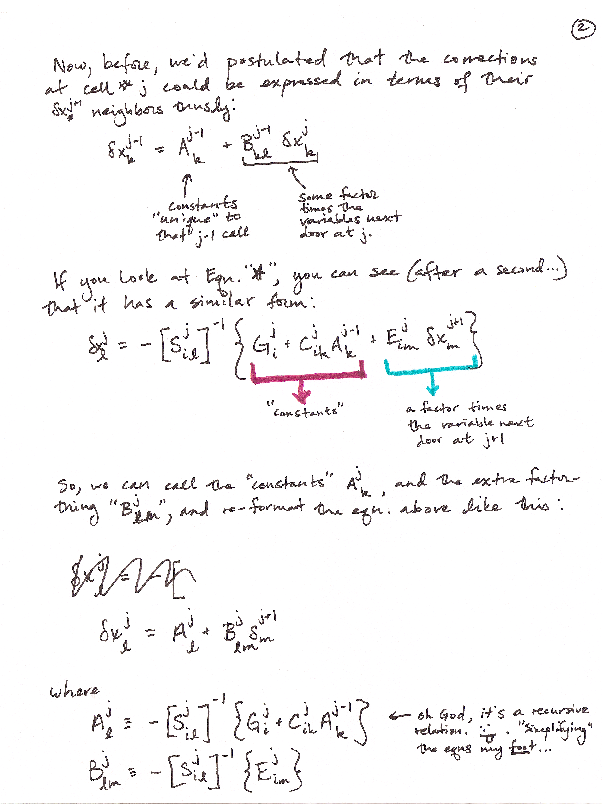 ②
Now, before, we'd postulated that the corrections
at cell # j could be expressed in terms of their
δx^{j+1} neighbors thusly:
δx_k^{j-1} = A_k^{j-1} + B_{kl}^{j-1} δx_k^j
constants
"unique" to
that j-1 cell
some factor
times the
variables next
door at j.
If you look at Eqn. "*", you can see (after a second...)
that it has a similar form:
δx_l^j = - [S_{il}^j]^{-1} { G_i^j + C_{ik}^j A_k^{j-1} + E_{im}^j δx_m^{j+1} }
"constants"
a factor times
the variable next
door at j+1
So, we can call the "constants" A_k^j, and the extra factor-
thing "B_{lm}^j", and re-format the eqn. above like this:
δx_l^j = A_l^j + B_{lm}^j δ_m^{j+1}
where
A_l^j ≡ - [S_{il}^j]^{-1} { G_i^j + C_{ik}^j A_k^{j-1} }
← oh God, it's a recursive
relation. "Simplifying"
the eqns my foot...
B_{lm}^j ≡ - [S_{il}^j]^{-1} { E_{im}^j }